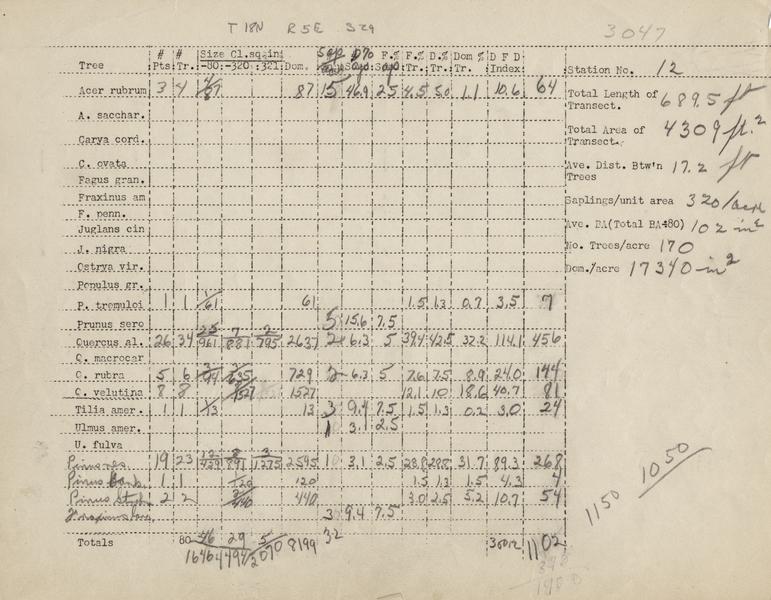 T 18N R 5E S 29
3047
# # Size Cl.sq.in; Sap D% F.% F.% D.% Dom % D F D
Tree Pts Tr. -80: -320 :321: Dom. Sap. Sap Tr. Tr. Tr. Index
Station No. 12
Acer rubrum 3 4 4/87 87 15 46.9 25 4.5 5.0 1.1 10.6 64
Total Length of Transect. 689.5 ft
A. sacchar.
Total Area of Transect. 4309 ft.2
Carya cord.
C. ovata
Ave. Dist. Btw'n Trees 17.2 ft
Fagus gran.
Fraxinus am
Saplings/unit area 320/acre
F. penn.
Juglans cin
Ave. BA(Total BA÷80) 102 in2
J. nigra
No. Trees/acre 170
Ostrya vir.
Dom./acre 17340 in2
Populus gr.
P. tremuloi 1 1 1/61 61 1.5 1.3 0.7 3.5 7
Prunus sero 5 15.6 7.5
Quercus al. 26 34 25/961 7/881 2/795 2637 2 6.3 5 39.4 42.5 32.2 114.1 456
Q. macrocar
Q. rubra 5 6 729 2 6.3 5 7.6 7.5 8.9 24.0 144
Q. velutina 8 8 1527 12.1 10 18.6 40.7 81
Tilia amer. 1 1 1/13 13 3 9.4 7.5 1.5 1.3 0.2 3.0 24
Ulmus amer. 1 3.1 2.5
U. fulva
Pinus res 19 23 12/429 8/891 3/1275 2595 1 3.1 2.5 28.8 28.5 31.7 89.3 268
Pinus Bank. 1 1 1/120 120 1.5 1.3 1.5 4.3 4
Pinus Strb. 2 2 2/440 440 3.0 2.5 5.2 10.7 54
Fraxinus 3 9.4 7.5
Totals 80 46/1646 29/4494 5/2070 8199 32 300.2 1102
1150 1050